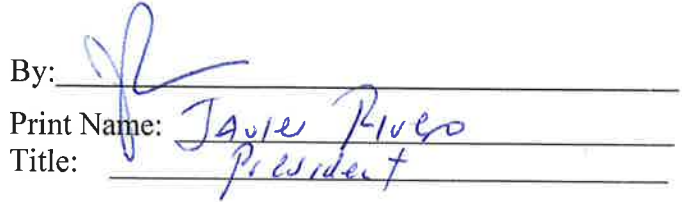 By:
Print Name: Javier Rivero
Title: President